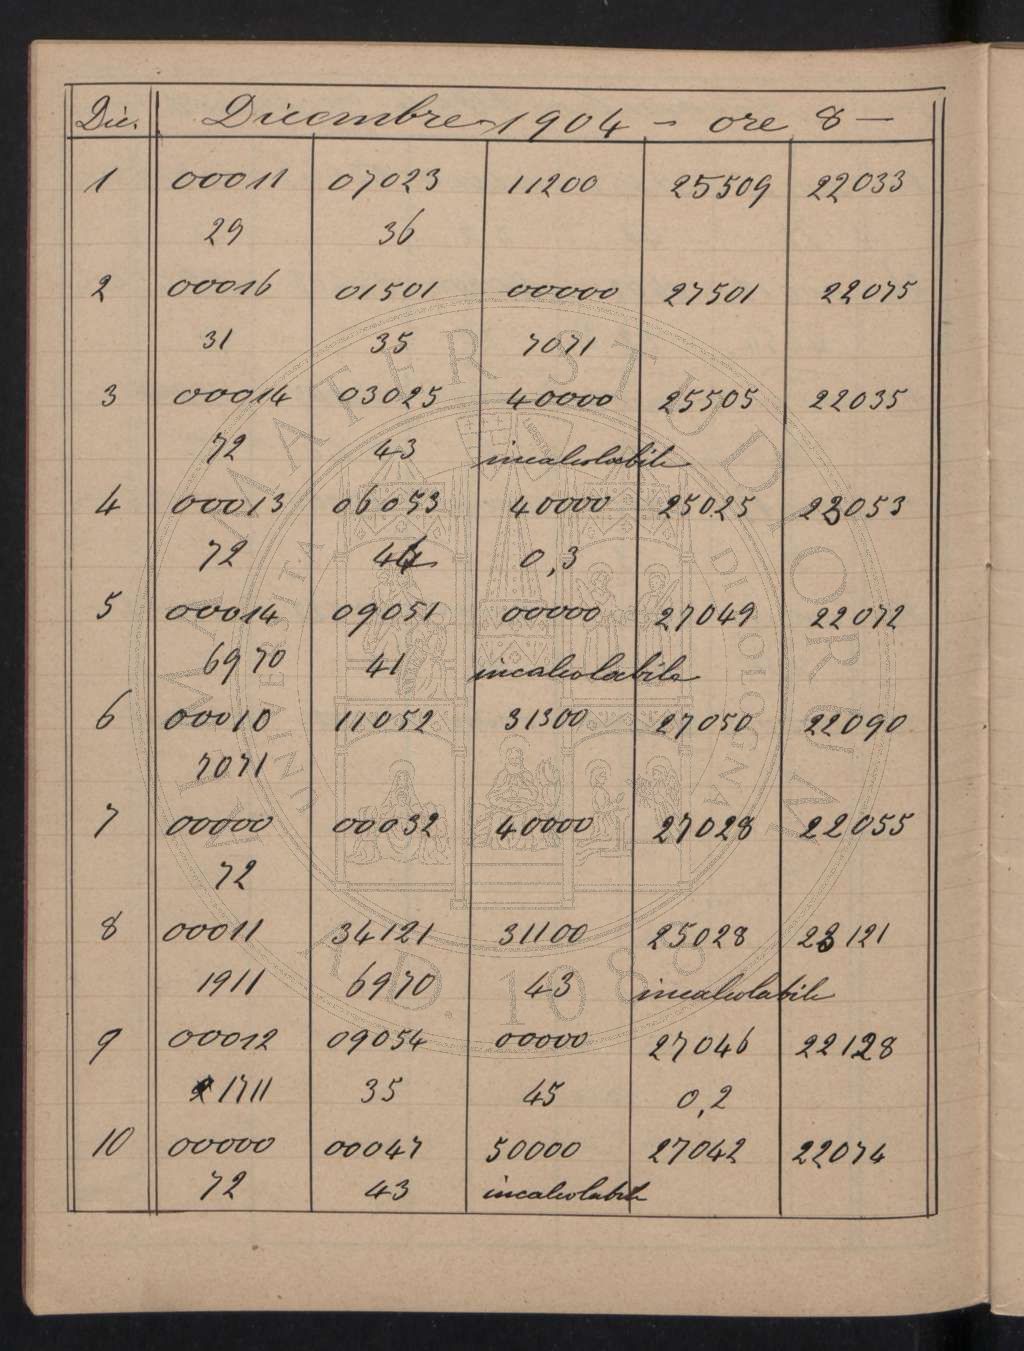 Dic. Dicembre 1904 - ore 8 -
1 00011 07023 11200 25509 22033
29 36
2 00016 01501 00000 27501 22075
31 35 7071
3 00014 03025 40000 25505 22035
72 43 incalcolabile
4 00013 06053 40000 25025 23053
72 44 0,3
5 00014 09051 00000 27049 22072
6970 41 incalcolabile
6 00010 11052 31300 27050 22090
7071
7 00000 00032 40000 27028 22055
72
8 00011 34121 31100 25028 23121
1911 6970 43 incalcolabile
9 00012 09054 00000 27046 22128
1711 35 45 0,2
10 00000 00047 50000 27042 22074
72 43 incalcolabile
ALMA MATER STUDIORUM
UNIVERSITÀ DI BOLOGNA
A.D. 1088